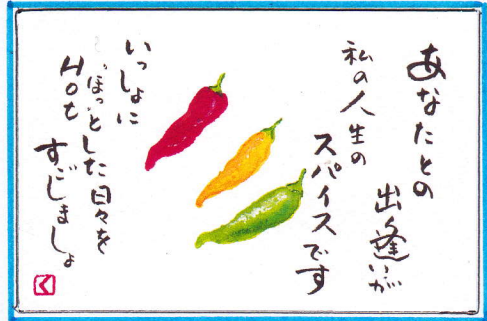 あなたとの
出逢いが
私の人生の
スパイスです
いっしょに
“ほっとした日々を
Hot
すごしましょ
く